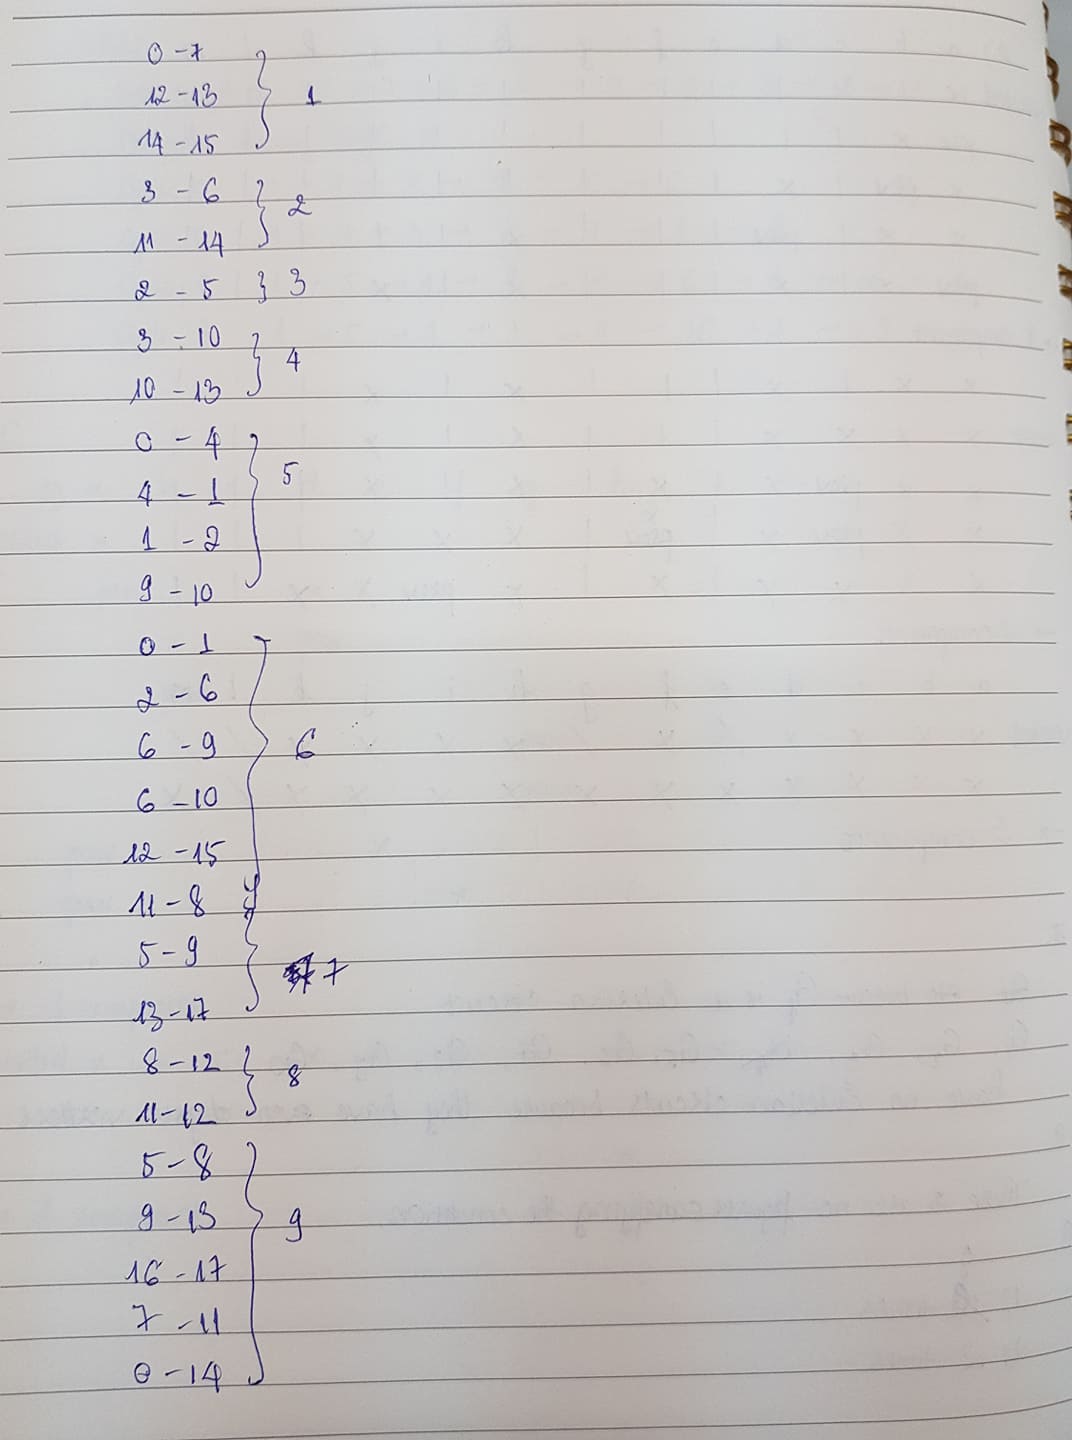 0 - 7
12 - 13 } 1
14 - 15
3 - 6
11 - 14 } 2
2 - 5 } 3
3 - 10
10 - 13 } 4
0 - 4
4 - 1 } 5
1 - 2
9 - 10
0 - 1
2 - 6
6 - 9 } 6
6 - 10
12 - 15
11 - 8
5 - 9 } 7
13 - 17
8 - 12 } 8
11 - 12
5 - 8
9 - 13 } 9
16 - 17
7 - 11
0 - 14